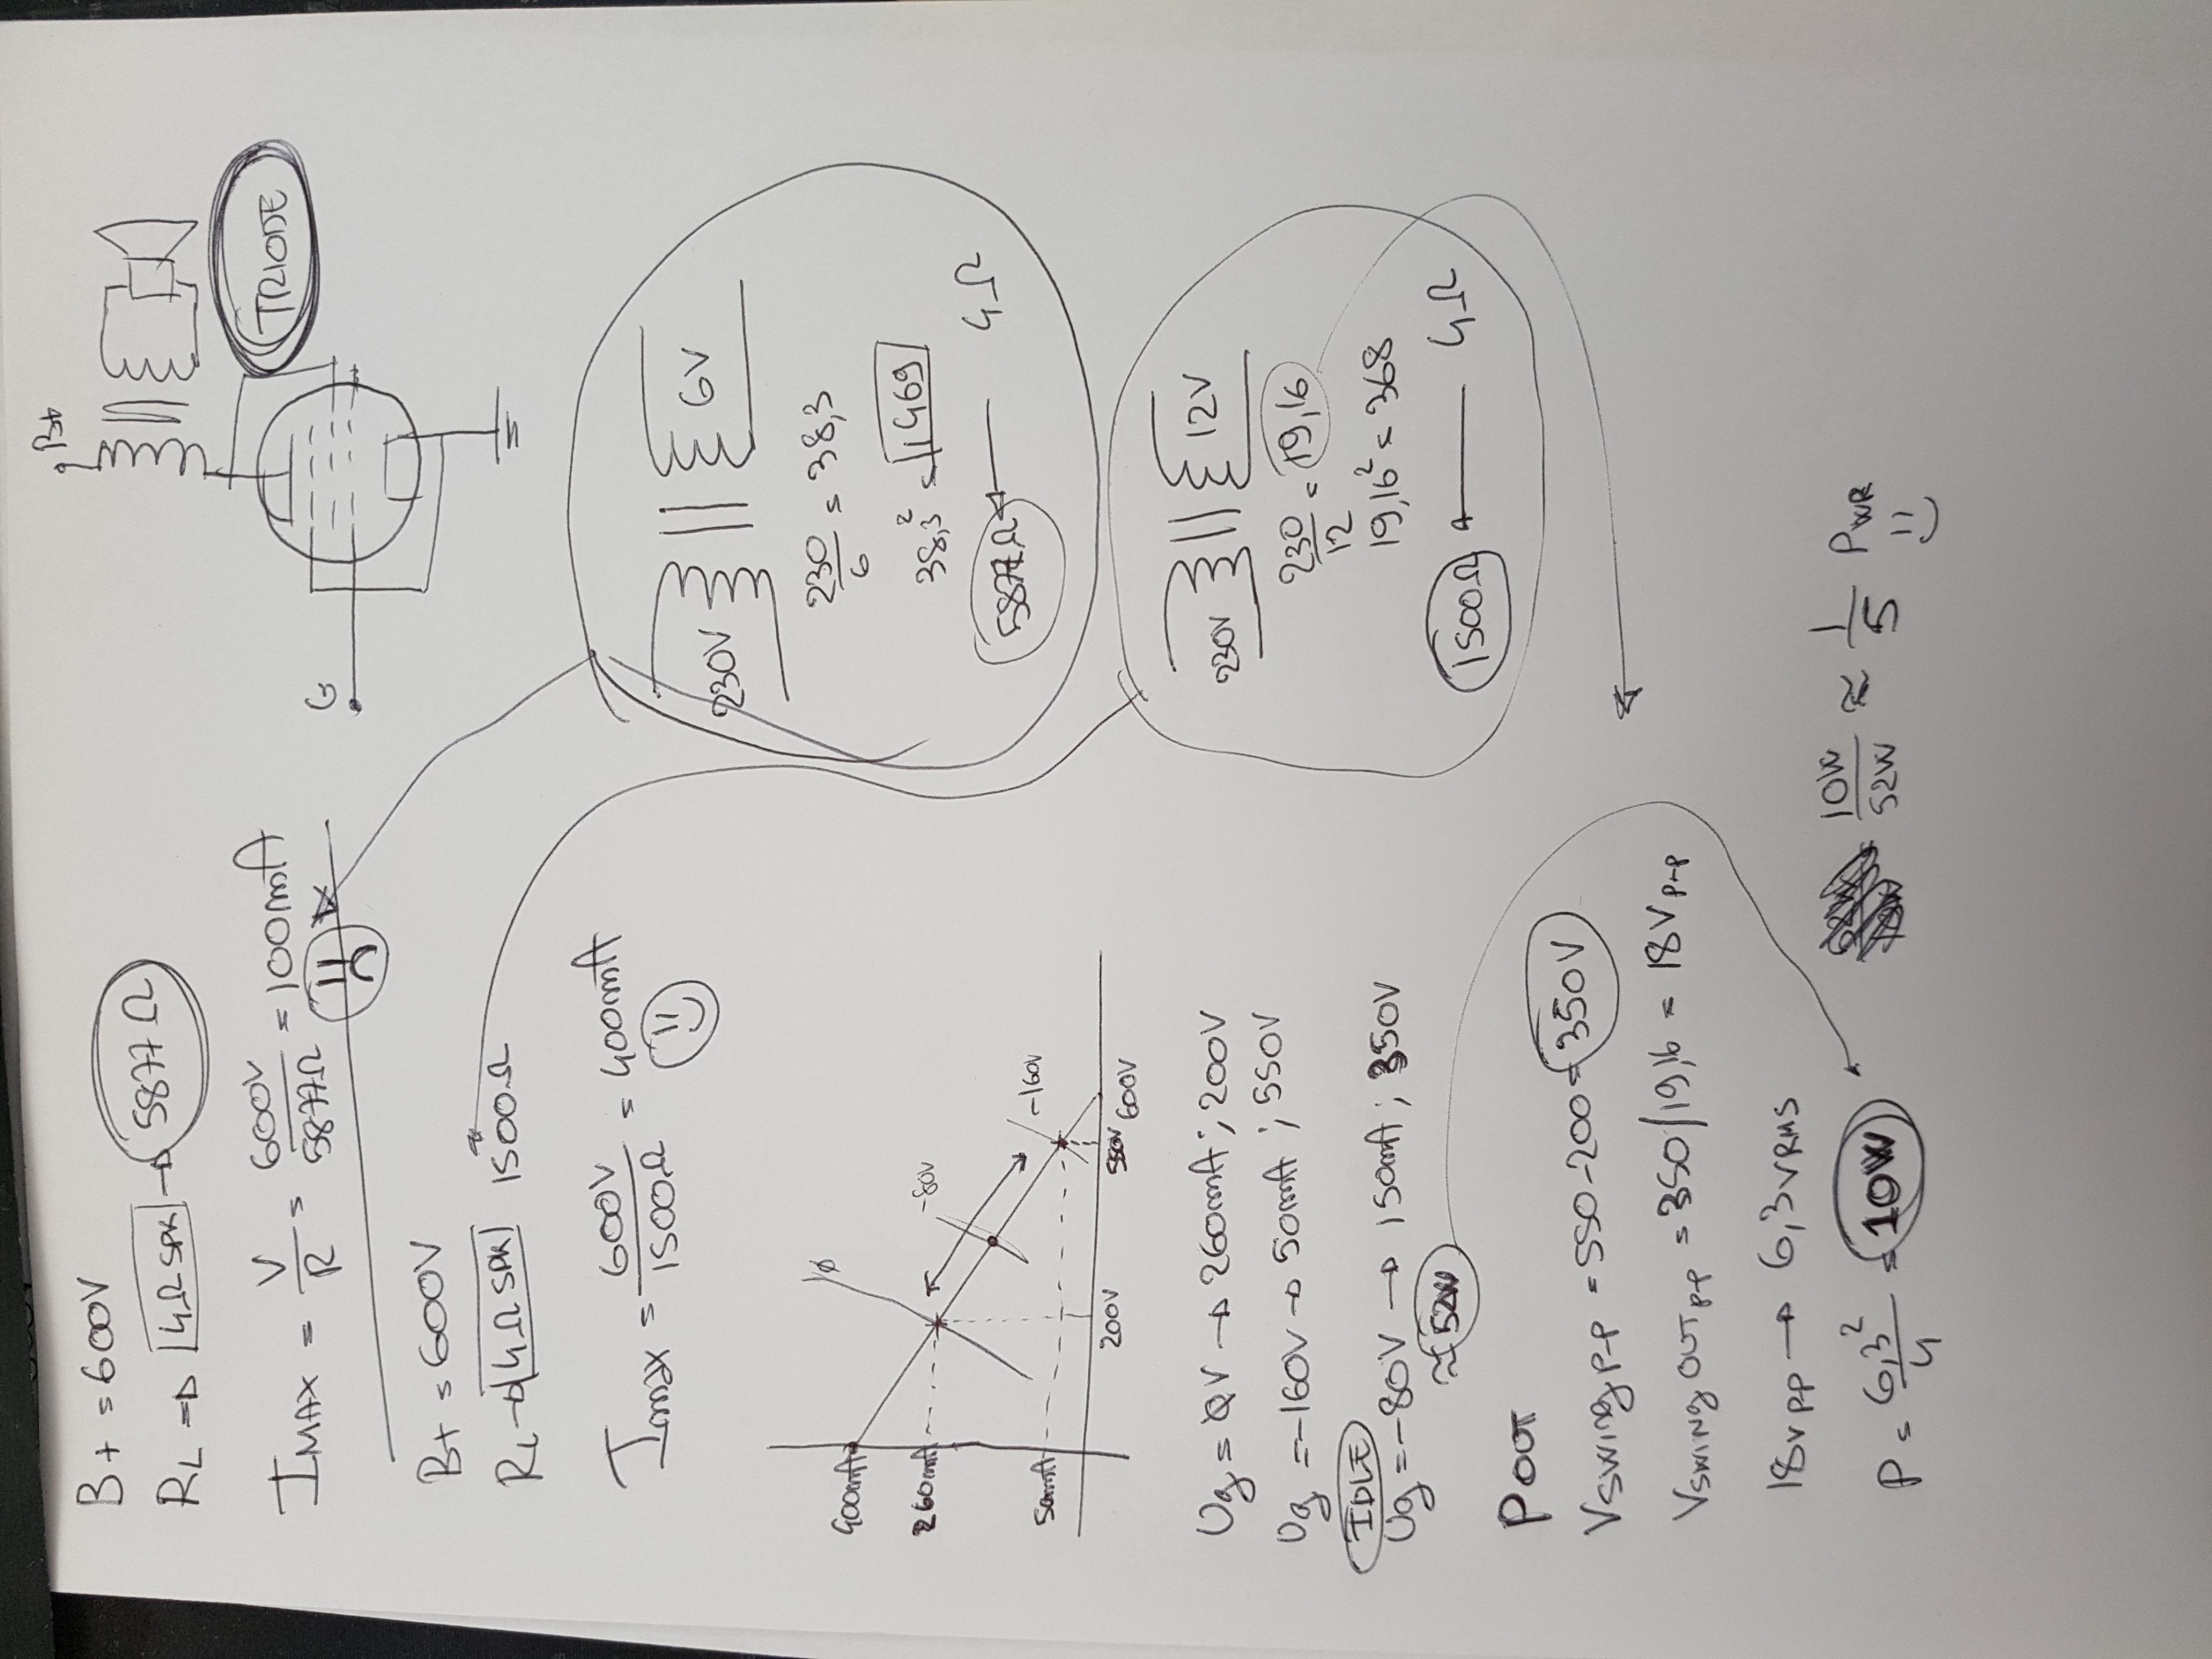 B+ = 600V
RL ⇒ 4Ω SPK → 5877Ω
IMAX = V/R = 600V/5877Ω = 100mA
B+ = 600V
RL → 4Ω SPK 1500Ω
Imax = 600V/1500Ω = 400mA
400mA
260mA
50mA
Ø
-80V
-160V
200V
550V
600V
Ug = 0V → 260mA; 200V
Ug = -160V → 50mA; 550V
IDLE
Ug = -80V → 150mA; 350V
≈ 52W
POUT
VSWINg P-P = 550-200 = 350V
VSWINg OUT PP = 350/19,16 = 18V P-P
18V PP → 6,3 VRMS
P = 6,3²/4 = 10W
10W/52W ≈ 1/5 PWR
B+
TRIODE
G
230V
6V
230/6 = 38,3
38,3² = 1469
5877Ω ← 4Ω
230V
12V
230/12 = 19,16
19,16² = 368
1500Ω ← 4Ω